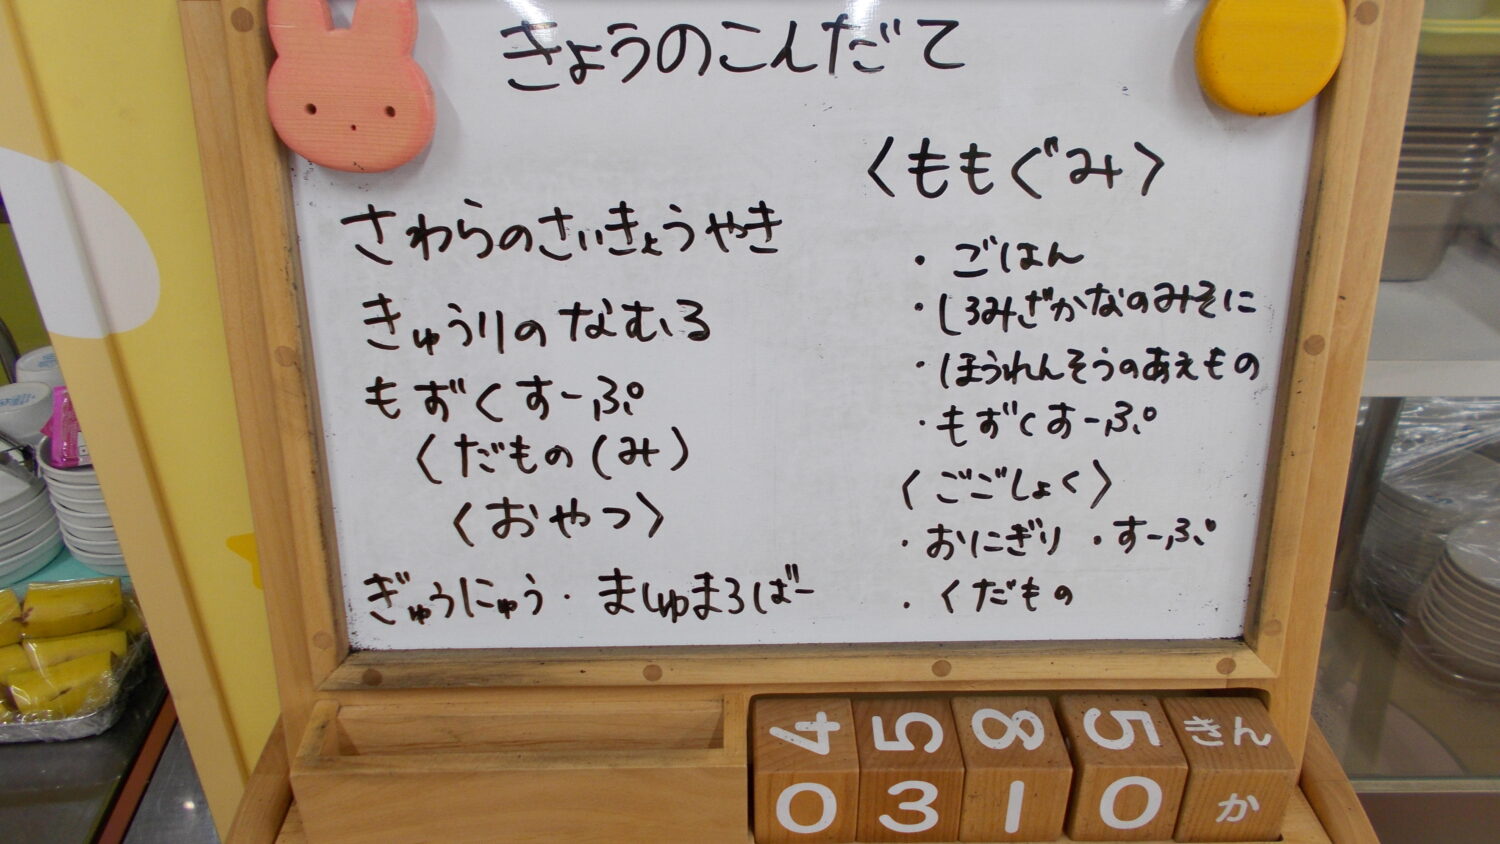 きょうのこんだて
さわらのさいきょうやき
きゅうりのなむる
もずくすーぷ
くだもの(みｶ)
〈おやつ〉
ぎゅうにゅう・ましゅまろばー
〈ももぐみ〉
・ごはん
・しろみざかなのみそに
・ほうれんそうのあえもの
・もずくすーぷ
〈ごごしょく〉
・おにぎり ・すーぷ
・くだもの
4 5 8 5 きん
0 3 1 0 か